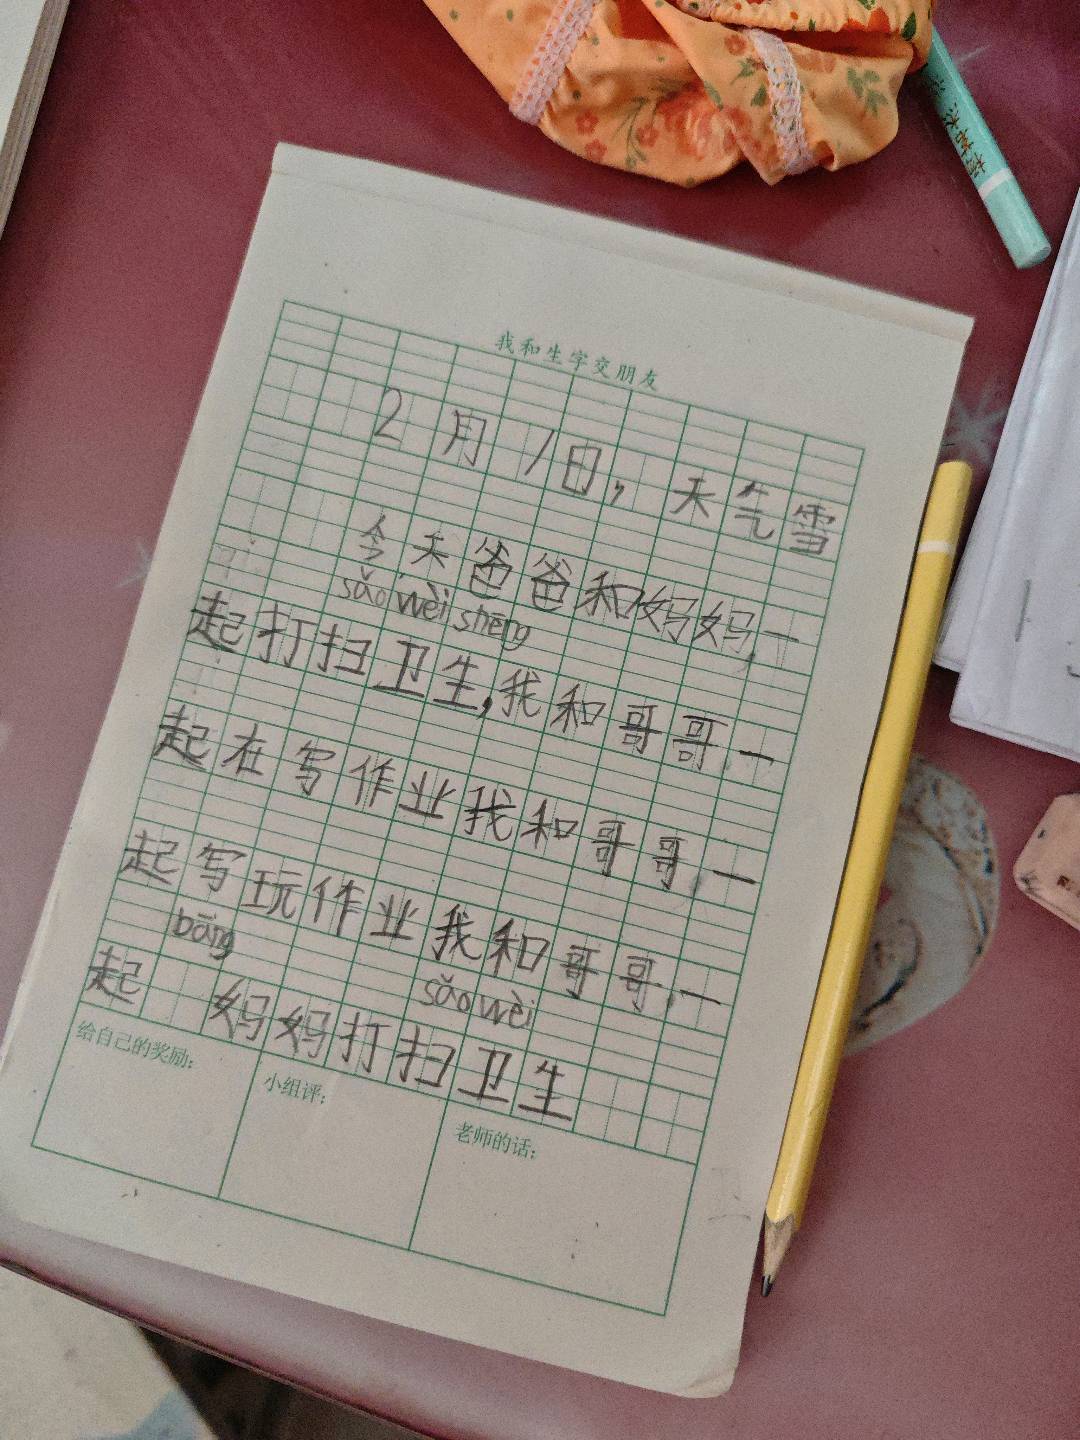 我和生字交朋友
2月1日，天气雪
今天爸爸和妈妈，一
sǎo wèi shēng
起打扫卫生，我和哥哥，一
起在写作业我和哥哥，一
起写玩作业我和哥哥，一
bāng
sǎo wèi
起 妈妈打扫卫生
给自己的奖励：
小组评：
老师的话：